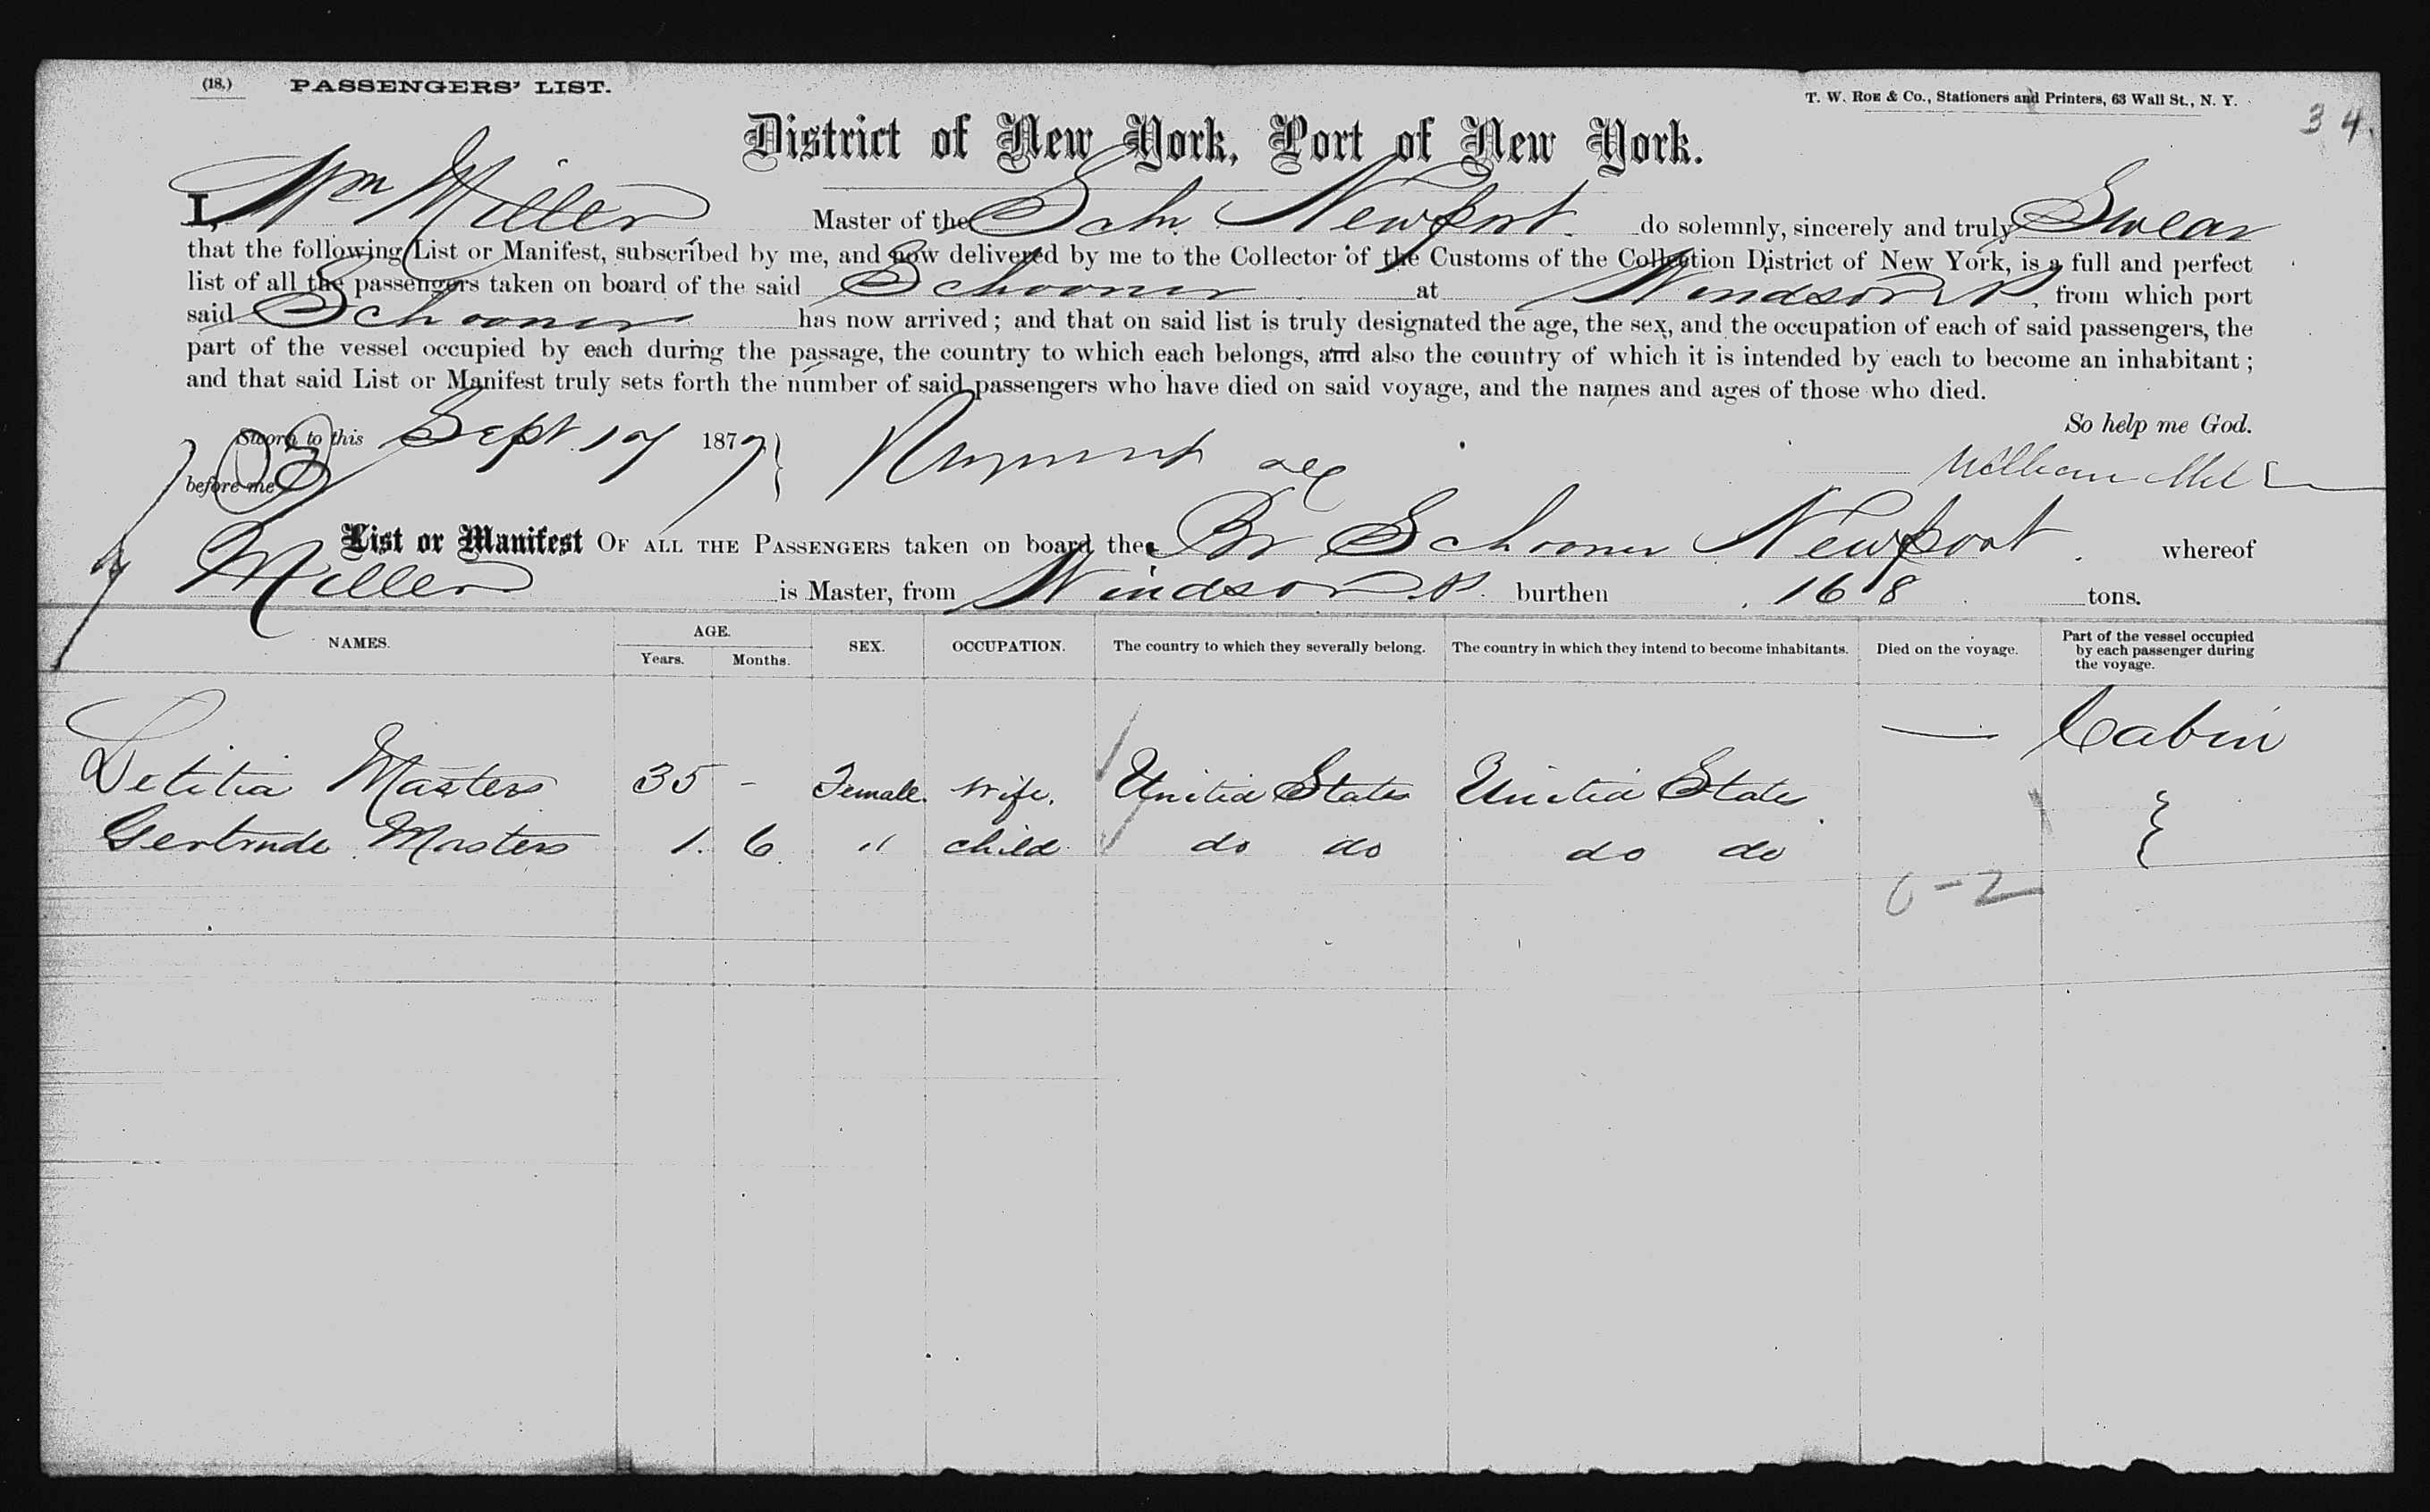 (18.) PASSENGERS' LIST.
T. W. ROE & Co., Stationers and Printers, 63 Wall St., N. Y.
34.
District of New York, Port of New York.
I, Wm Miller Master of the Schr. Newport. do solemnly, sincerely and truly Swear
that the following List or Manifest, subscribed by me, and now delivered by me to the Collector of the Customs of the Collection District of New York, is a full and perfect
list of all the passengers taken on board of the said Schooner at Windsor from which port
said Schooner has now arrived; and that on said list is truly designated the age, the sex, and the occupation of each of said passengers, the
part of the vessel occupied by each during the passage, the country to which each belongs, and also the country of which it is intended by each to become an inhabitant;
and that said List or Manifest truly sets forth the number of said passengers who have died on said voyage, and the names and ages of those who died.
So help me God.
Sworn to this Sept. 17 1877
before me
William
List or Manifest OF ALL THE PASSENGERS taken on board the Br Schooner Newport. whereof
Miller is Master, from Windsor burthen 168 tons.
NAMES. AGE. SEX. OCCUPATION. The country to which they severally belong. The country in which they intend to become inhabitants. Died on the voyage. Part of the vessel occupied by each passenger during the voyage.
Years. Months.
— Cabin
Letitia Masters 35 - Female. Wife. United States United States
Gertrude Masters 1. 6 " child do do do do
0-2